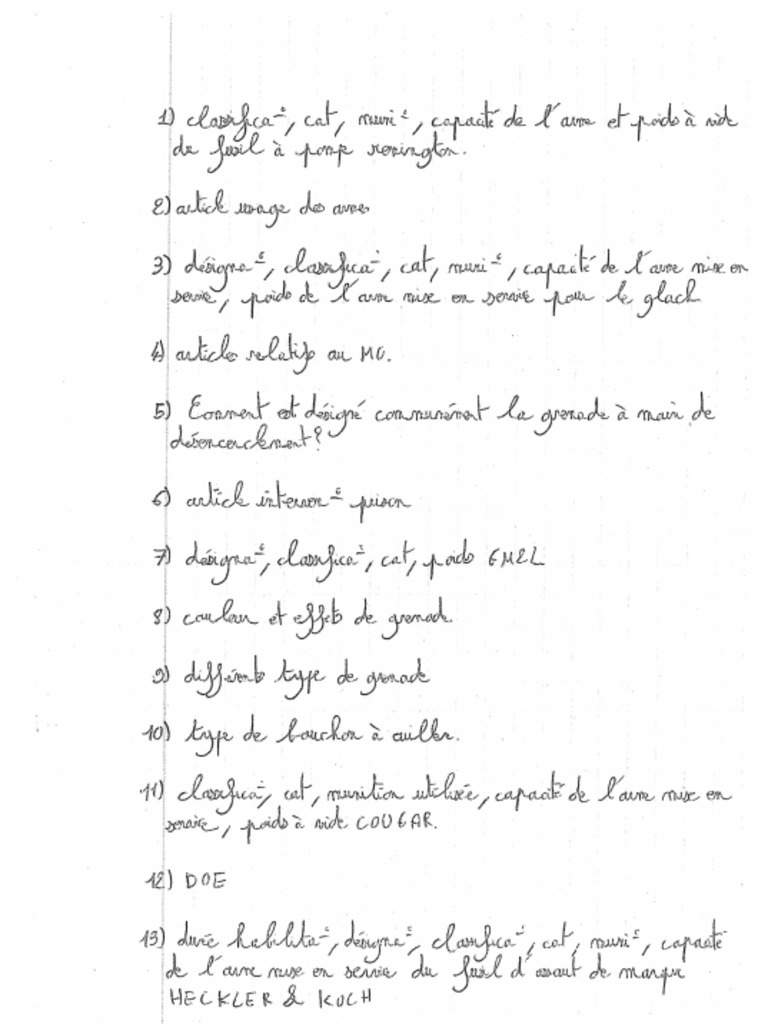 1) classifica°, cat, muni°, capacité de l'arme et poids à vide
du fusil à pompe remington.
2) article usage des armes
3) désigna°, classifica°, cat, muni°, capacité de l'arme mise en
service, poids de l'arme mise en service pour le glock
4) articles relatifs au MO.
5) Comment est désigné communément la grenade à main de
désencerclement?
6) article interven° prison
7) désigna°, classifica°, cat, poids GM2L
8) couleur et effets de grenade
9) différents type de grenade
10) type de bouchon à cuiller.
11) classifica°, cat, munition utilisée, capacité de l'arme mise en
service, poids à vide COUGAR.
12) DOE
13) durée habilita°, désigna°, classifica°, cat, muni°, capacité
de l'arme mise en service du fusil d'assaut de marque
HECKLER & KOCH